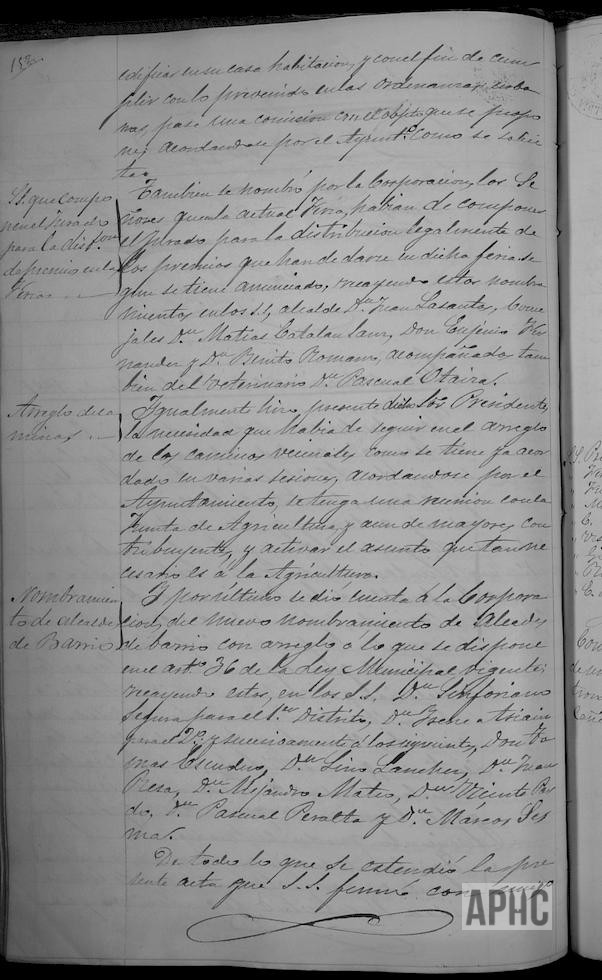 edificar en su casa habitacion, y con el fin de cum
plir con lo prevenido en las Ordenanzas urba
nas, pase una comision con el objeto que se propo
ne; acordandose por el Ayuntº. como se solici
ta.
SS. que compo
nen el Jurado
para la dist.on
de premios en la
Feria.
Tambien se nombró por la Corporacion, los Se
ñores que en la actual Feria, habian de componer
el Jurado para la distribucion legalmente de
los premios que han de darse en dicha feria se
gun se tiene anunciado, recayendo estos nombra
mientos en los SS. alcalde Dn. Juan Lasanta, Conce
jales Dn. Matias Catalan Sanz, Don Eugenio Her
nandez y Dn. Benito Romano, acompañados tam
bien del Veterinario Dn. Pascual Otaira.
Arreglo de ca
minos
Igualmente hizo presente dicho Sor. Presidente,
la necesidad que habia de seguir en el arreglo
de los caminos vecinales como se tiene ya acor
dado en varias sesiones, acordandose por el
Ayuntamiento, se tenga una reunion con la
Junta de Agricultura y aun de mayores con
tribuyentes, y activar el asunto que tan ne
cesario es á la Agricultura.
Nombramien
to de alcaldes
de Barrio
Y por ultimo se dio cuenta á la Corpora
cion, del nuevo nombramiento de Alcaldes
de barrio con arreglo á lo que se dispone
en el artº. 36 de la Ley Municipal vigente;
recayendo estos, en los S.S. Dn. Sinforiano
Segura para el 1er. Distrito, Dn. Irene Asiain
para el 2º. y sucesivamente á los siguientes, Don To
mas Escudero, Dn. Lino Sanchez, Dn. Juan
Resa, Dn. Alejandro Mateo, Dn. Vicente Par
do, Dn. Pascual Peralta y Dn. Marcos Ses
ma.
De todo lo que se estendió la pre
sente acta que S.S. firmó con
APHC